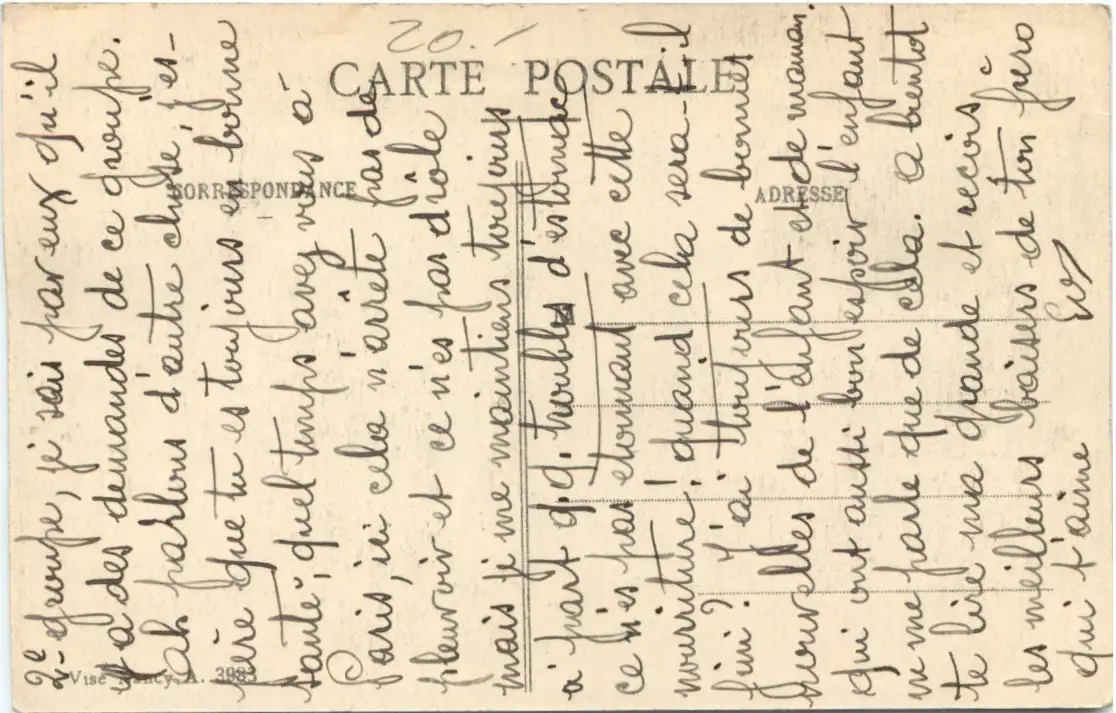 20.-
CARTE POSTALE
CORRESPONDANCE
ADRESSE
Visé Nancy. A. 3983
2e groupe, je sais par eux qu'il
y a des demandes de ce groupe.
Ah parlons d'autre chose j'es-
père que tu es toujours en bonne
santé, quel temps avez vous à
Paris, ici cela n'arrête pas de
pleuvoir et ce n'es pas drôle
mais je me maintiens toujours
à part q.q. troubles d'estomac
ce n'es pas etonnant avec cette
nourriture! quand cela sera-t-il
fini? J'ai toujours de bonnes
nouvelles de l'enfant et de maman.
qui ont aussi bon espoir, l'enfant
ne me parle que de cela. a bientot
te lire ma grande et recois
les meilleurs baisers de ton frero
qui t'aime